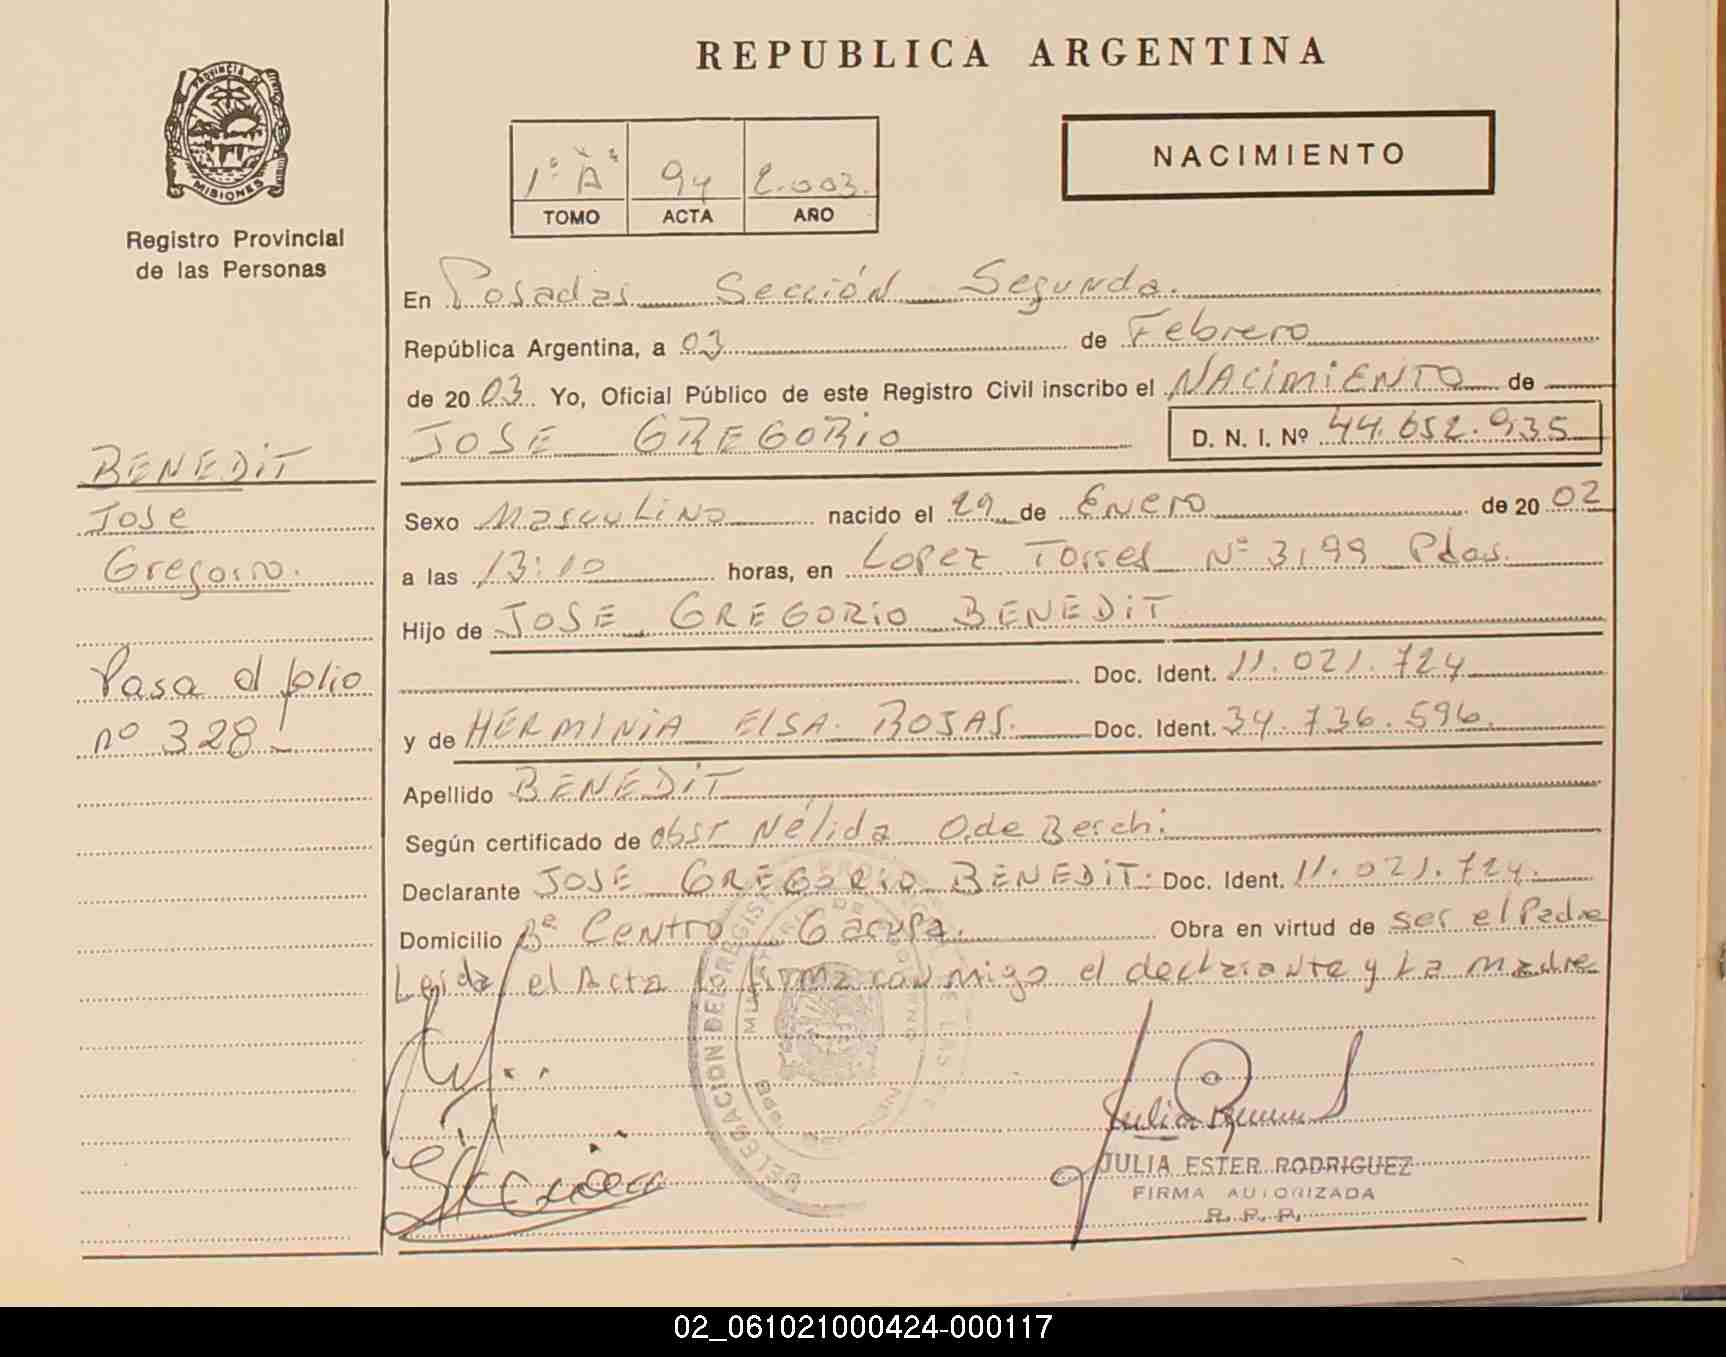 REPUBLICA ARGENTINA
PROVINCIA DE
MISIONES
Registro Provincial
de las Personas
1º "A" 94 2.003.
TOMO ACTA AÑO
NACIMIENTO
En Posadas Sección Segunda.
República Argentina, a 03 de Febrero
de 2003 Yo, Oficial Público de este Registro Civil inscribo el NACIMIENTO de
JOSE GREGORIO D. N. I. Nº 44.652.935
BENEDIT
Jose
Gregorio.
Pasa al folio
nº 328
Sexo Masculino nacido el 29 de Enero de 2002
a las 13:10 horas, en Lopez Torres Nº 3199 Pdas.
Hijo de JOSE GREGORIO BENEDIT
Doc. Ident. 11.021.724
y de HERMINIA ELSA ROJAS. Doc. Ident. 34.736.596.
Apellido BENEDIT
Según certificado de obst Nélida O. de Berchi
Declarante JOSE GREGORIO BENEDIT. Doc. Ident. 11.021.724.
Domicilio Bº Centro Garupa. Obra en virtud de ser el Padre
Leida el Acta la firma conmigo el declarante y la madre
DELEGACION DEL REGISTRO PROVINCIAL DE LAS
JULIA ESTER RODRIGUEZ
FIRMA AUTORIZADA
R. P. P.
02_061021000424-000117